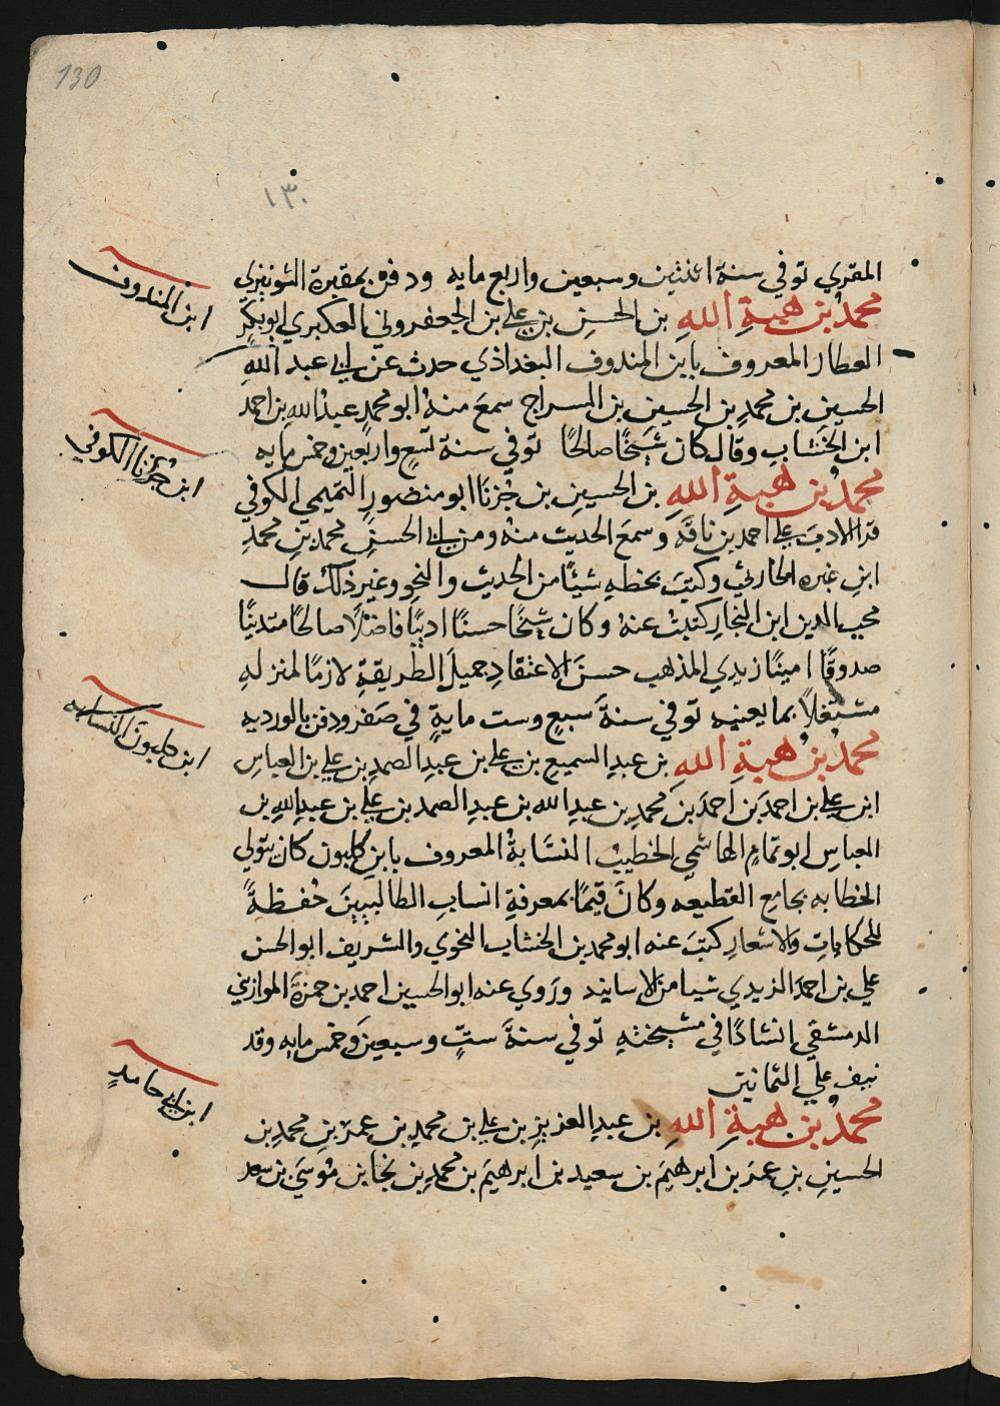 130
١٣٠
المقري توفي سنة اثنتين وسبعين واربع مايه ودفن بمقبرة الشونيزي
ابن المندوف
محمد بن هبة الله بن الحسن بن علي بن الجعفروني العكبري ابو بكر
العطار المعروف بابن المندوف البغداذي حدث عن ابي عبد الله
الحسين بن محمد بن الحسين بن السراج سمع منه ابو محمد عبد الله بن احمد
ابن الخشاب وقال كان شيخًا صالحًا توفي سنة تسع واربعين وخمس مايه
ابن جزنا الكوفي
محمد بن هبة الله بن الحسين بن جُزنَا ابو منصور التميمي الكوفي
قرا الادب علي احمد بن ناقَه وسمع الحديث منه ومن ابي الحسن محمد بن محمد
ابن غبره الحارثي وكتب بخطه شيئًا من الحديث والنحو وغير ذلك قال
محب الدين ابن النجار كتبت عنه وكان شيخًا حسنًا اديبًا فاضلًا صالحًا متدينًا
صدوقًا امينًا زيدي المذهب حسن الاعتقاد جميل الطريقة لازمًا لمنزله
مشتغلًا بما يعنيه توفي سنة سبع وست ماية في صفر ودفن بالورديه
ابن كلبون النسابه
محمد بن هبة الله بن عبد السميع بن علي بن عبد الصمد بن علي بن العباس
ابن علي بن احمد بن احمد بن محمد بن عبد الله بن عبد الصمد بن علي بن عبد الله بن
العباس ابو تمام الهاشمي الخطيب النسّابة المعروف بابن كلبون كان يتولي
الخطابه بجامع القطيعه وكان قيمًا بمعرفة انساب الطالبيين حُفَظةً
للحكايات والاشعار كتب عنه ابو محمد بن الخشاب النحوي والشريف ابو الحسن
علي بن احمد الزيدي شيا من الاسانيد وروي عنه ابو الحسين احمد بن حمزة الموازيني
الدمشقي انشادًا في مشيخته توفي سنة ستٍ وسبعين وخمس مايه وقد
نيف علي الثمانين
ابن ابي حامد
محمد بن هبة الله بن عبد العزيز بن علي بن محمد بن عمر بن محمد بن
الحسين بن عمر بن ابرهيم بن سعيد بن ابرهيم بن محمد بن نجا بن موسي بن سعد